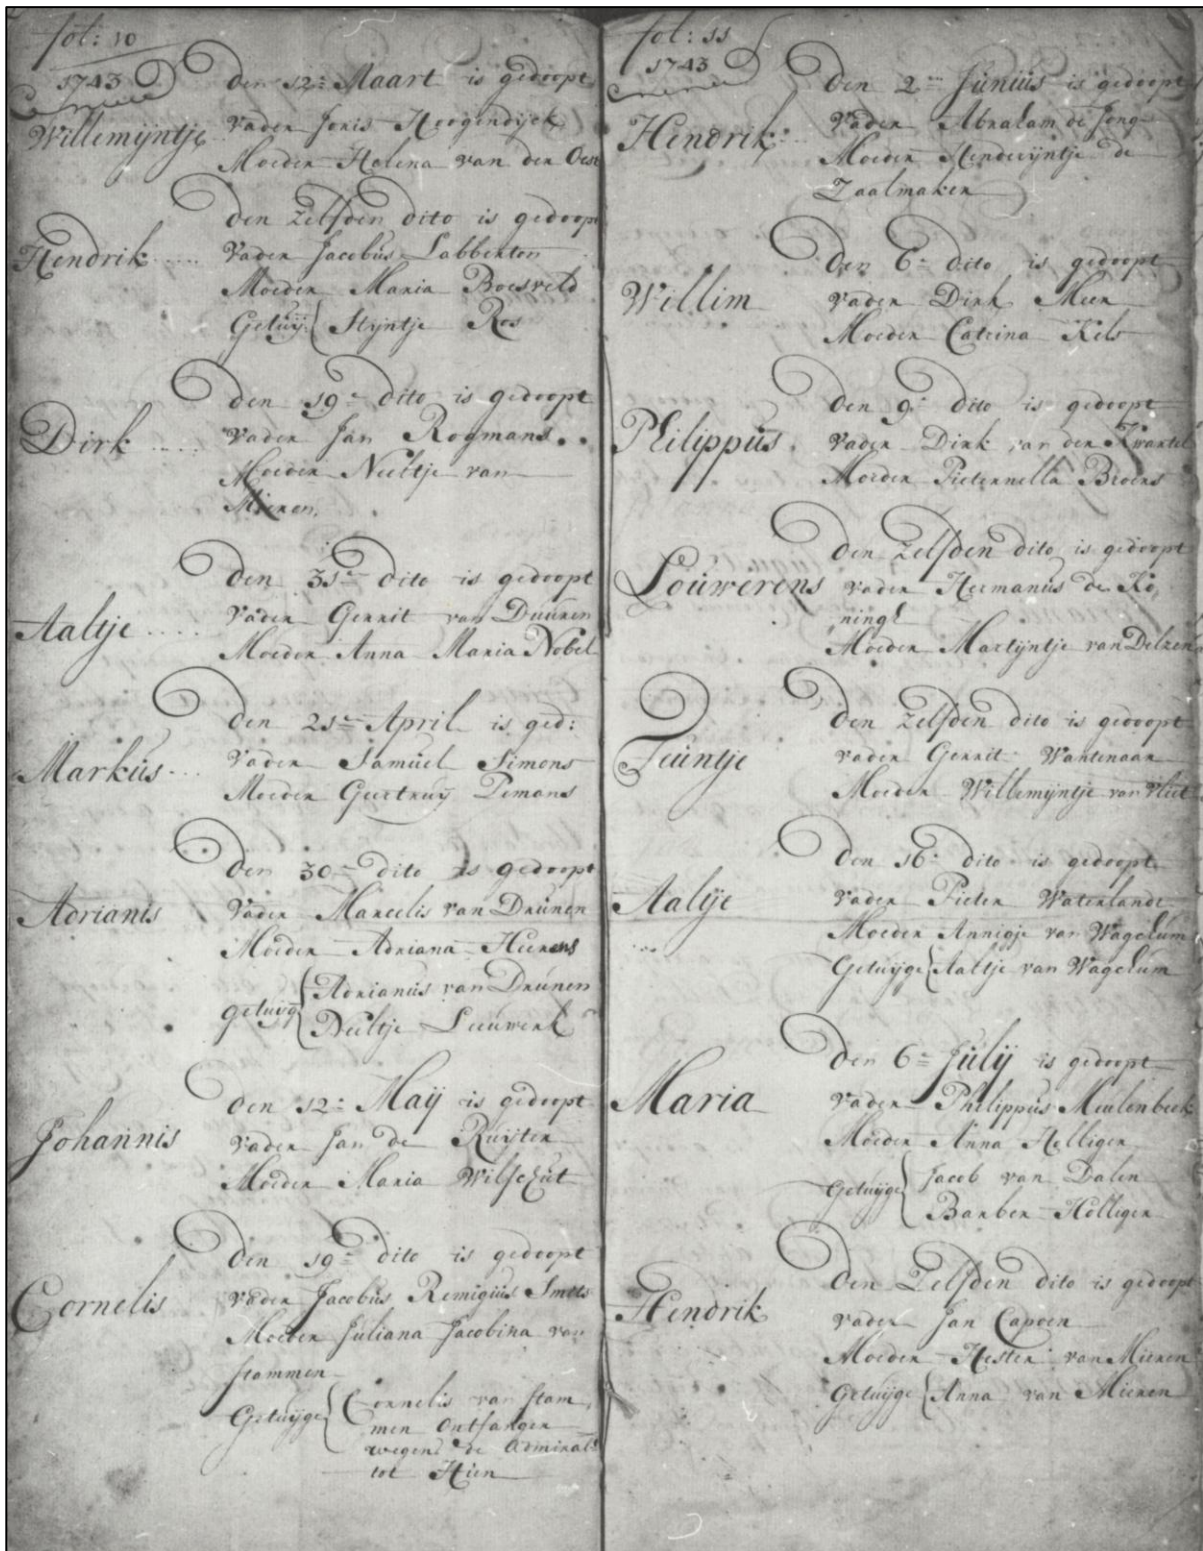 fol: 10
1743
Willemijntje
Den 12: Maart is gedoopt
Vader Joris Hoogendijck
Moeder Helena van den Oest
Hendrik .....
Den zelfden dito is gedoopt
Vader Jacobus Labberton
Moeder Maria Boesveld
Getuij: { Stijntje Ros
Dirk .....
Den 19: dito is gedoopt
Vader Jan Rogmans
Moeder Neeltje van
Mieren
Aaltje .....
Den 31: dito is gedoopt
Vader Gerrit van Duuren
Moeder Anna Maria Nobel
Markus ...
Den 21: April is ged:
Vader Samuel Simons
Moeder Geertruij Pemans
Adrianis
Den 30: dito is gedoopt
Vader Marcelis van Drunen
Moeder Adriana
getuijg { Adrianus van Drunen
Neeltje Leeuwen
Johannis
Den 12: Maij is gedoopt
Vader Jan de Ruijter
Moeder Maria Wilschut
Cornelis
Den 19: dito is gedoopt
Vader Jacobus Remigius Smets
Moeder Juliana Jacobina van
Stammen
Getuijge { Cornelis van Stam
men Ontfanger
wegens de Admiral:
tot Hien
fol: 11
1743
Hendrik:
Den 2: Junius is gedoopt
Vader Abraham de Jong
Moeder Henderijntje de
Zaalmaker
Willim
Den 6: dito is gedoopt
Vader Dirk Meer
Moeder Catrina Kels
Philippus.
Den 9: dito is gedoopt
Vader Dirk van der Kwartel
Moeder Pieternella Broers
Louwerens
Den zelfden dito is gedoopt
Vader Hermanus de Ko,
ningh
Moeder Martijntje van Delzen
Teuntje
Den zelfden dito is gedoopt
Vader Gerrit Wantenaar
Moeder Willemijntje van Vliet
Aaltje
Den 16: dito is gedoopt
Vader Pieter Waterlandt
Moeder Annigje van Wagelum
Getuijge { Aaltje van Wagelum
Maria
Den 6: Julij is gedoopt
Vader Philippus Meulenbeek
Moeder Anna Helliger
Getuijge { Jacob van Dalen
Barber Holliger
Hendrik
Den Zelfden dito is gedoopt
Vader Jan Capoen
Moeder Hester van Mieren
Getuijge { Anna van Mieren